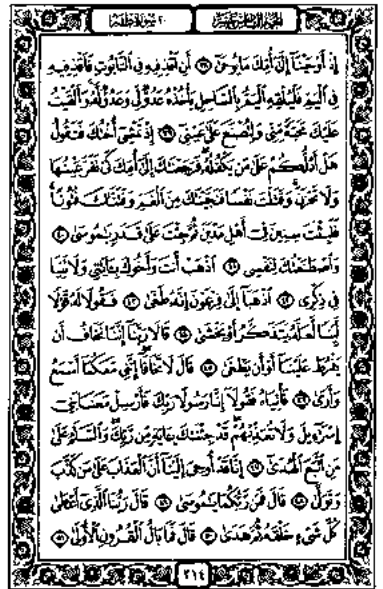 الجزء السادس عشر
٢٠ سورة طه
إِذْ أَوْحَيْنَآ إِلَىٰٓ أُمِّكَ مَا يُوحَىٰٓ ٣٨ أَنِ ٱقْذِفِيهِ فِى ٱلتَّابُوتِ فَٱقْذِفِيهِ
فِى ٱلْيَمِّ فَلْيُلْقِهِ ٱلْيَمُّ بِٱلسَّاحِلِ يَأْخُذْهُ عَدُوٌّ لِّى وَعَدُوٌّ لَّهُۥ وَأَلْقَيْتُ
عَلَيْكَ مَحَبَّةً مِّنِّى وَلِتُصْنَعَ عَلَىٰ عَيْنِىٓ ٣٩ إِذْ تَمْشِىٓ أُخْتُكَ فَتَقُولُ
هَلْ أَدُلُّكُمْ عَلَىٰ مَن يَكْفُلُهُۥ فَرَجَعْنَٰكَ إِلَىٰٓ أُمِّكَ كَىْ تَقَرَّ عَيْنُهَا
وَلَا تَحْزَنَ وَقَتَلْتَ نَفْسًا فَنَجَّيْنَٰكَ مِنَ ٱلْغَمِّ وَفَتَنَّٰكَ فُتُونًا
فَلَبِثْتَ سِنِينَ فِىٓ أَهْلِ مَدْيَنَ ثُمَّ جِئْتَ عَلَىٰ قَدَرٍ يَٰمُوسَىٰ ٤٠
وَٱصْطَنَعْتُكَ لِنَفْسِى ٤١ ٱذْهَبْ أَنتَ وَأَخُوكَ بِـَٔايَٰتِى وَلَا تَنِيَا
فِى ذِكْرِى ٤٢ ٱذْهَبَآ إِلَىٰ فِرْعَوْنَ إِنَّهُۥ طَغَىٰ ٤٣ فَقُولَا لَهُۥ قَوْلًا
لَّيِّنًا لَّعَلَّهُۥ يَتَذَكَّرُ أَوْ يَخْشَىٰ ٤٤ قَالَا رَبَّنَآ إِنَّنَا نَخَافُ أَن
يَفْرُطَ عَلَيْنَآ أَوْ أَن يَطْغَىٰ ٤٥ قَالَ لَا تَخَافَآ إِنَّنِى مَعَكُمَآ أَسْمَعُ
وَأَرَىٰ ٤٦ فَأْتِيَاهُ فَقُولَآ إِنَّا رَسُولَا رَبِّكَ فَأَرْسِلْ مَعَنَا بَنِىٓ
إِسْرَٰٓءِيلَ وَلَا تُعَذِّبْهُمْ قَدْ جِئْنَٰكَ بِـَٔايَةٍ مِّن رَّبِّكَ وَٱلسَّلَٰمُ عَلَىٰ
مَنِ ٱتَّبَعَ ٱلْهُدَىٰٓ ٤٧ إِنَّا قَدْ أُوحِىَ إِلَيْنَآ أَنَّ ٱلْعَذَابَ عَلَىٰ مَن كَذَّبَ
وَتَوَلَّىٰ ٤٨ قَالَ فَمَن رَّبُّكُمَا يَٰمُوسَىٰ ٤٩ قَالَ رَبُّنَا ٱلَّذِىٓ أَعْطَىٰ
كُلَّ شَىْءٍ خَلْقَهُۥ ثُمَّ هَدَىٰ ٥٠ قَالَ فَمَا بَالُ ٱلْقُرُونِ ٱلْأُولَىٰ ٥١
٣١٤